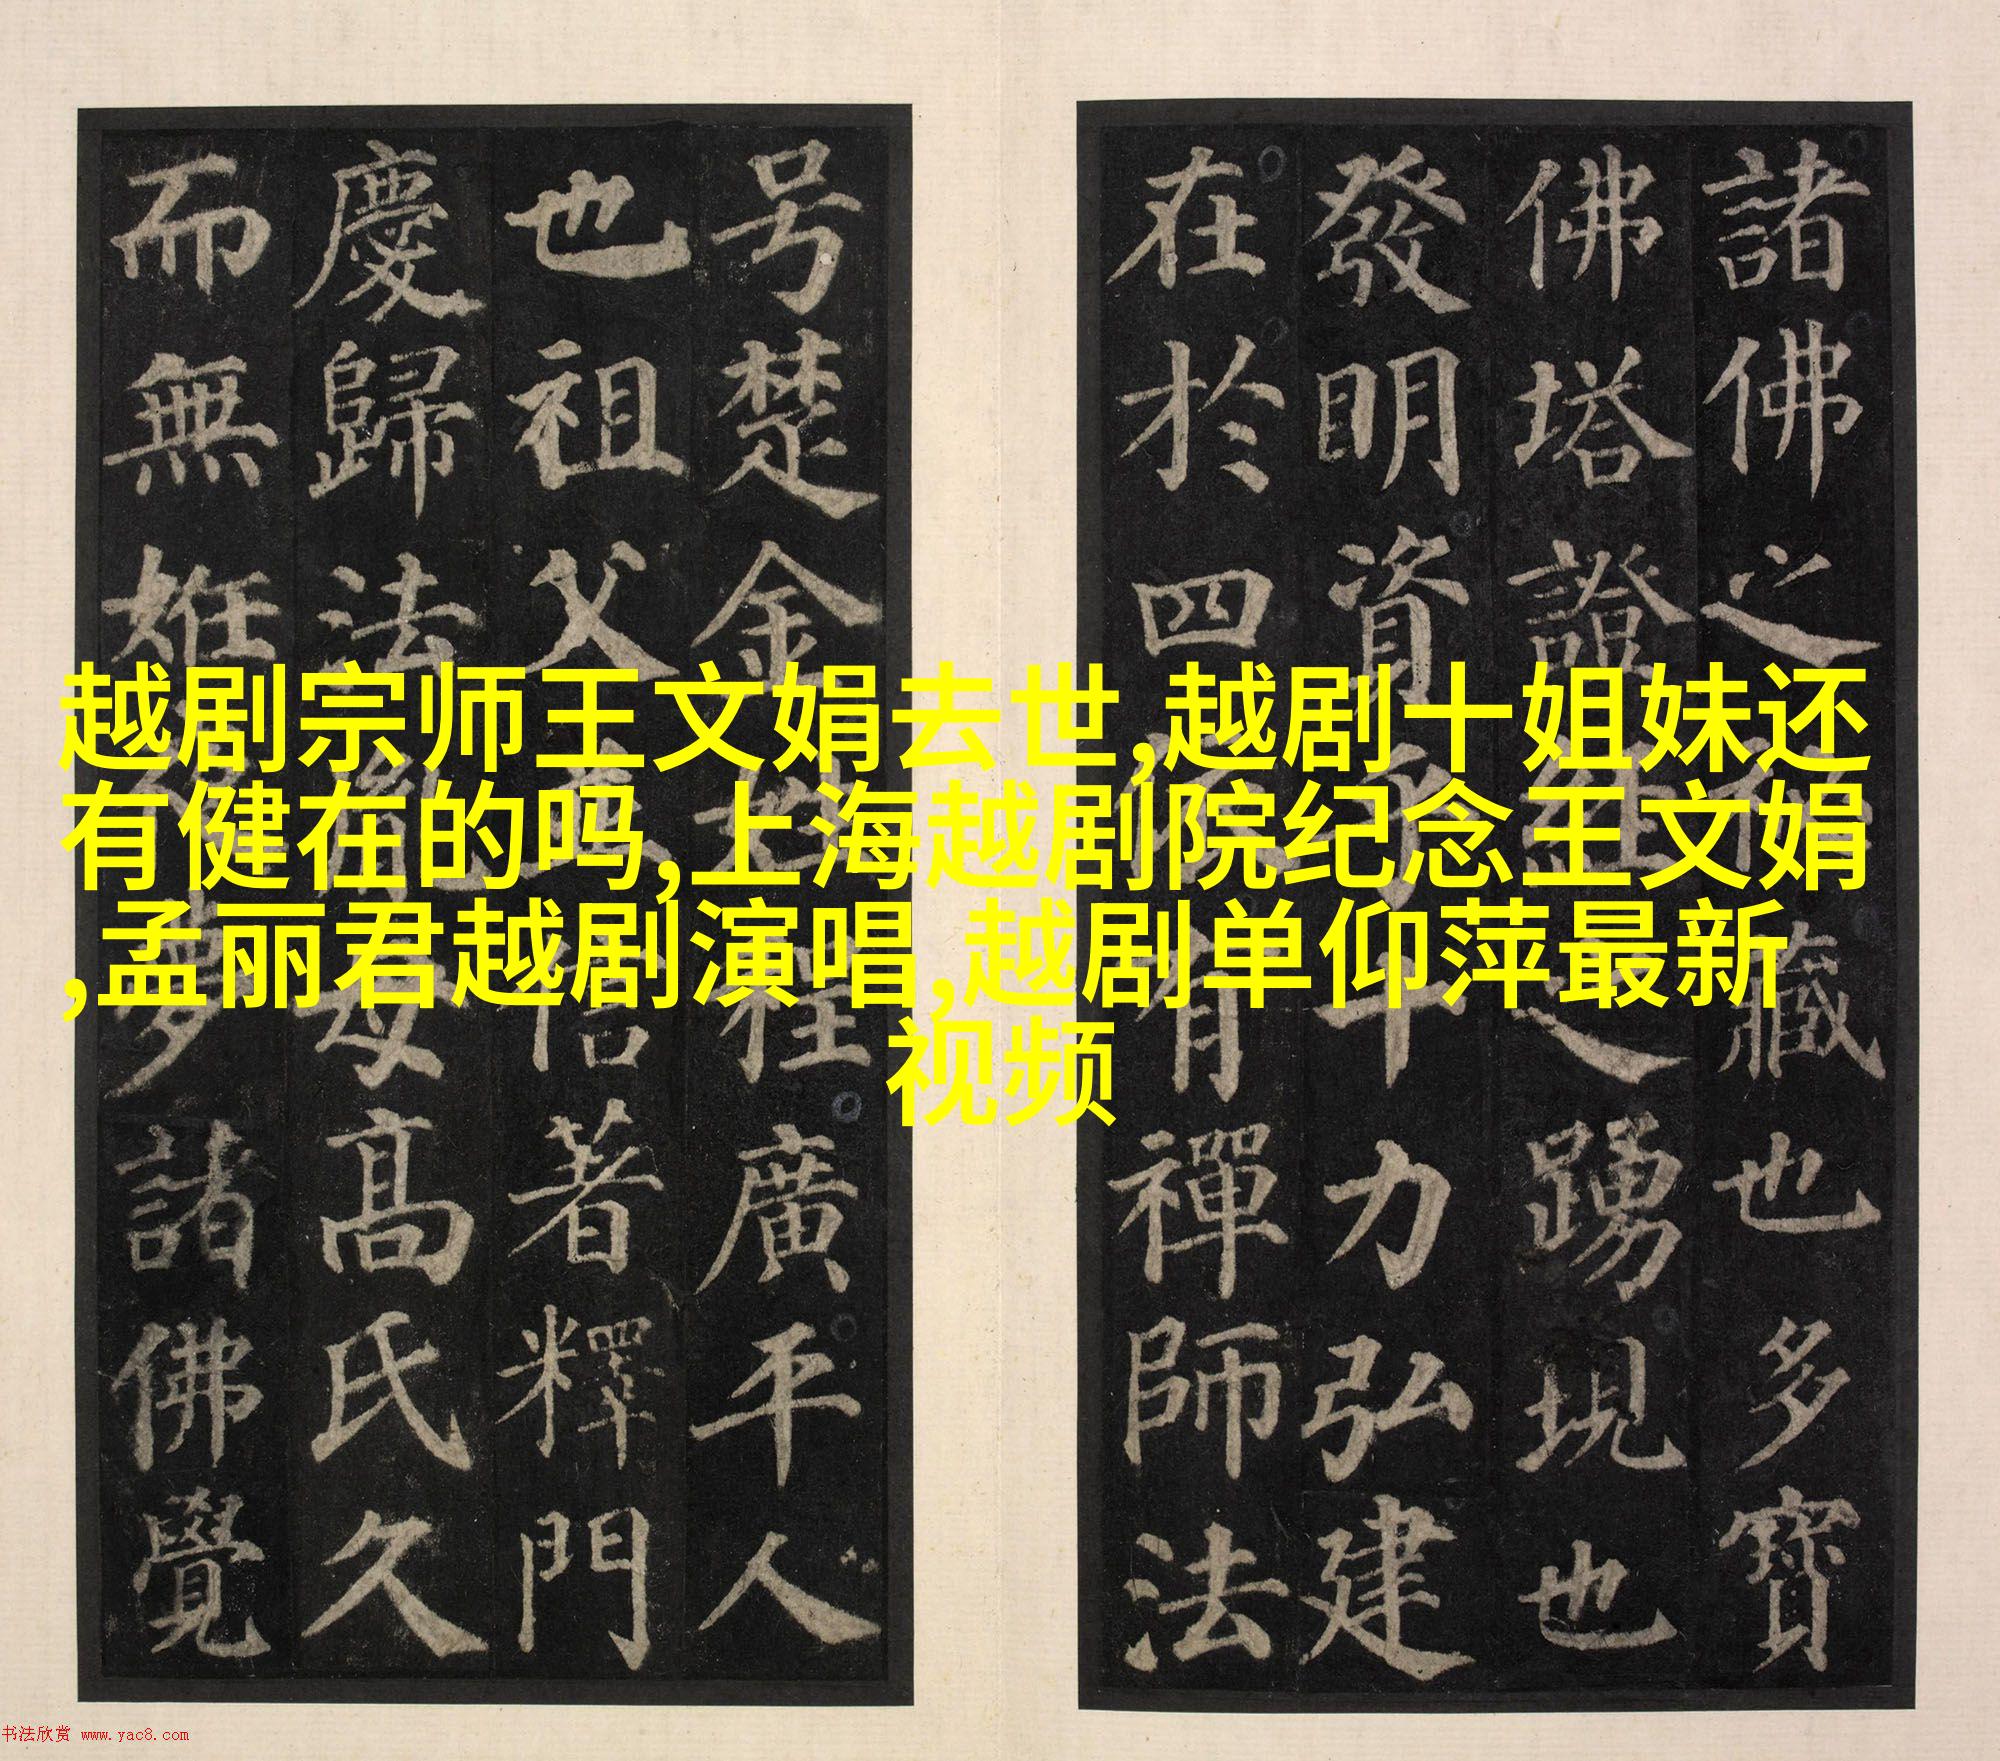 越剧宗师王文娟去世,越剧十姐妹还
有健在的吗,上海越剧院纪念王文娟
,孟丽君越剧演唱,越剧单仰萍最新
视频
諸佛之秘藏也多寶
佛塔證經之踴現也
發明資乎十力弘建
在於四依有禪師法
号楚金姓程廣平人
也祖父並信著釋門
慶歸法胤母高氏久
而無姙夜夢諸佛覺
书法欣赏 www.yac8.com